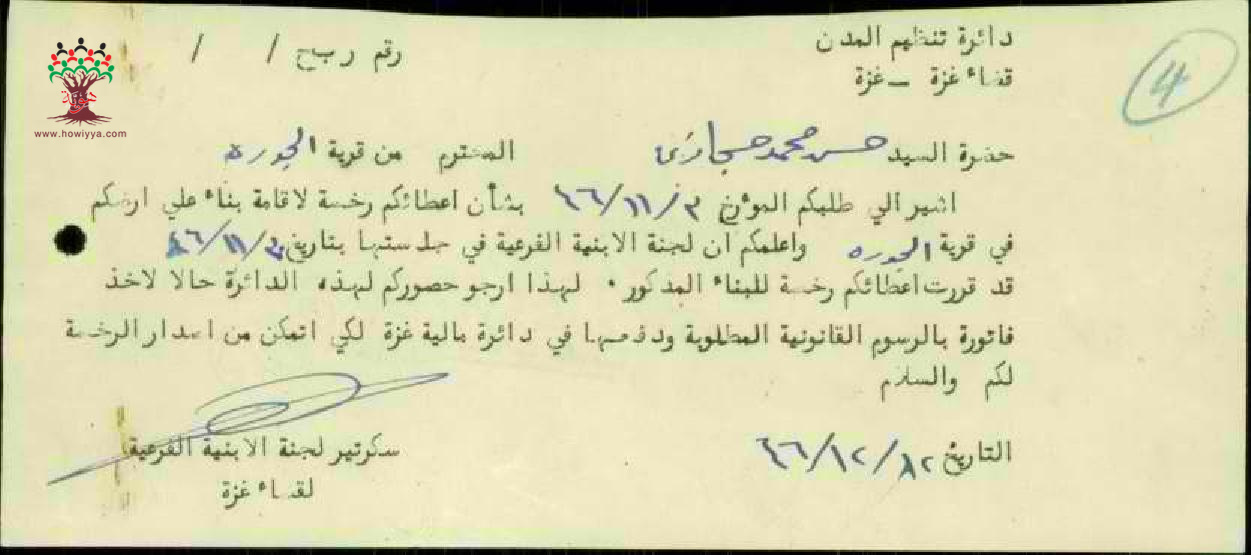 دائرة تنظيم المدن
رقم ر ب ج / /
قضاء غزة — غزة
4
www.howiyya.com
حضرة السيد حسن محمد حجازي المحترم من قرية الجوره
اشير الي طلبكم المؤرخ ٣/١١/٤٦ بشأن اعطائكم رخصة لاقامة بناء علي ارضكم
في قرية الجوره واعلمكم ان لجنة الابنية الفرعية في جلستها بتاريخ ١١/٤٦/
قد قررت اعطائكم رخصة للبناء المذكور . لهذا ارجو حضوركم لهذه الدائرة حالا لاخذ
فاتورة بالرسوم القانونية المطلوبة ودفعها في دائرة مالية غزة لكي اتمكن من اصدار الرخصة
لكم والسلام
التاريخ ١٢/٤٦/
سكرتير لجنة الابنية الفرعية
لقضاء غزة